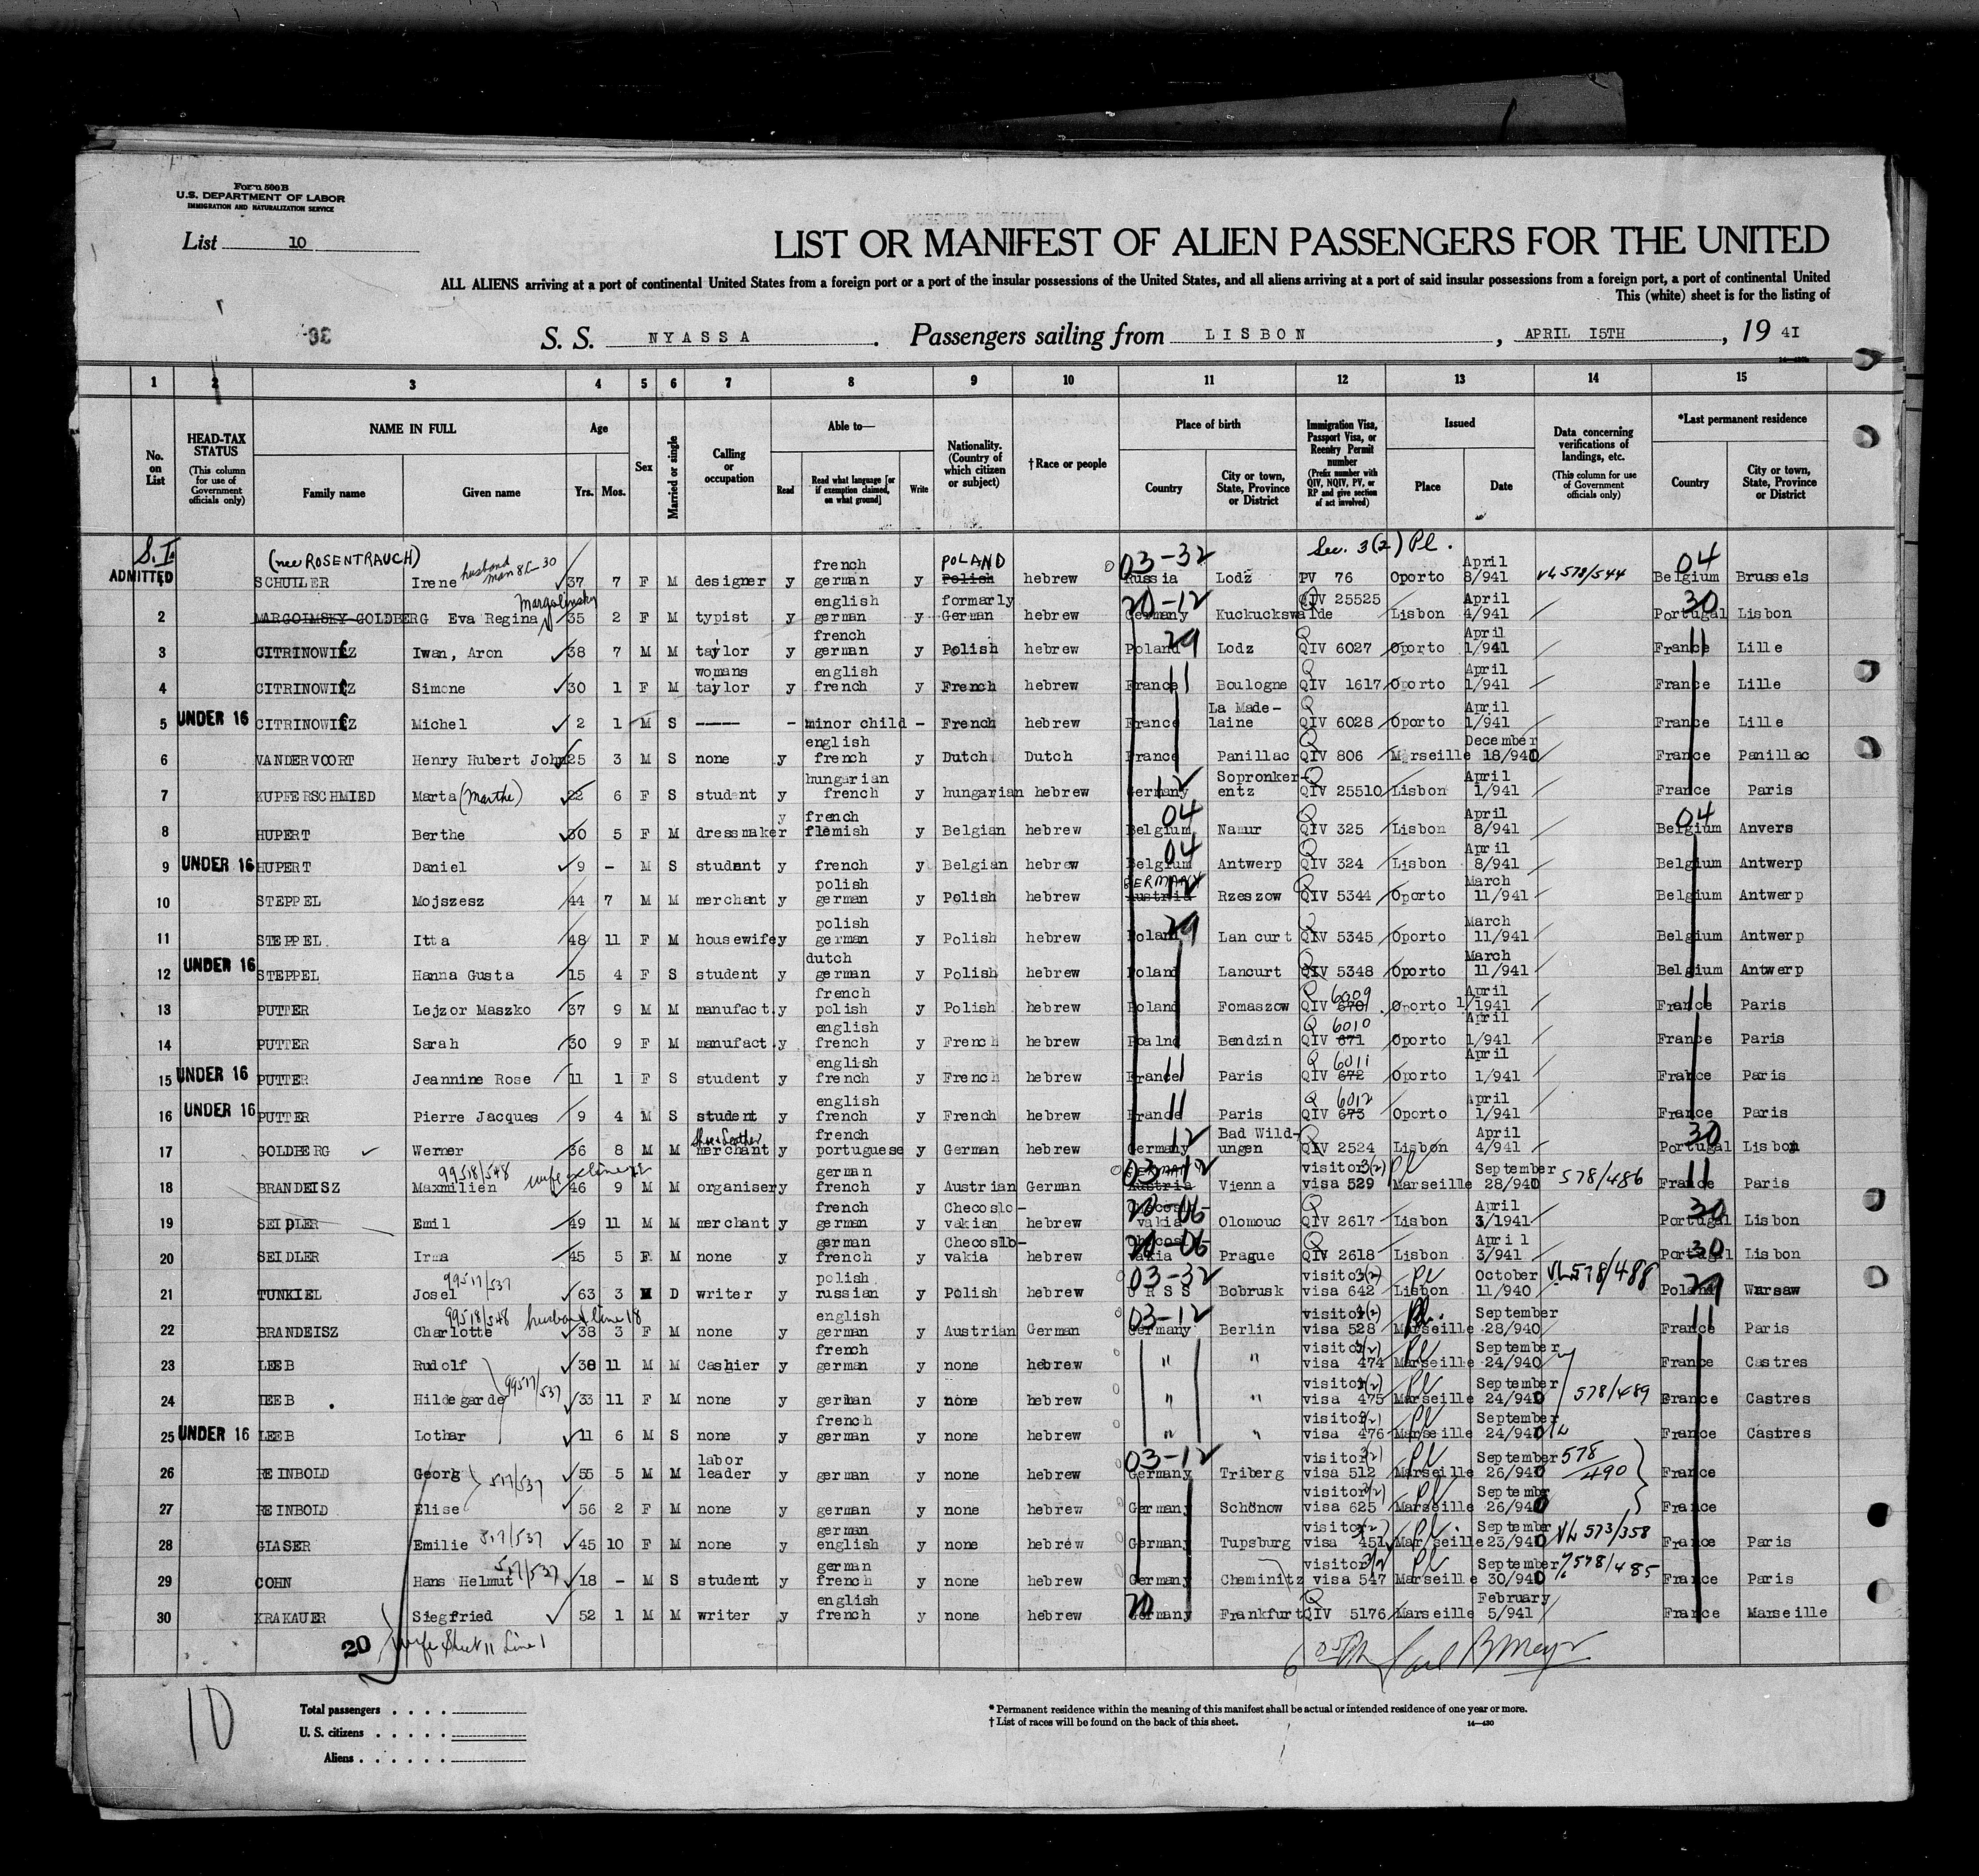 Form 500 B
U.S. DEPARTMENT OF LABOR
IMMIGRATION AND NATURALIZATION SERVICE
List 10
LIST OR MANIFEST OF ALIEN PASSENGERS FOR THE UNITED
ALL ALIENS arriving at a port of continental United States from a foreign port or a port of the insular possessions of the United States, and all aliens arriving at a port of said insular possessions from a foreign port, a port of continental United
This (white) sheet is for the listing of
S. S. NYASSA . Passengers sailing from LISBON , APRIL 15TH , 19 41
1 2 3 4 5 6 7 8 9 10 11 12 13 14 15
No. on List
HEAD-TAX STATUS (This column for use of Government officials only)
NAME IN FULL Family name Given name
Age Yrs. Mos.
Sex
Married or single
Calling or occupation
Able to— Read Read what language [or if exemption claimed, on what ground] Write
Nationality. (Country of which citizen or subject)
†Race or people
Place of birth Country City or town, State, Province or District
Immigration Visa, Passport Visa, or Reentry Permit number (Prefix number with QIV, NQIV, PV, or RP and give section of act involved)
Issued Place Date
Data concerning verifications of landings, etc. (This column for use of Government officials only)
*Last permanent residence Country City or town, State, Province or District
S.I. (nee ROSENTRAUCH) husband POLAND 03-32 Sec. 3(2) Pl. 04
ADMITTED 1 SCHUILER Irene 37 7 F M designer y french german y Polish hebrew Russia Lodz PV 76 Oporto April 8/941 VL 578/544 Belgium Brussels
2 MARGOIMSKY GOLDBERG Eva Regina Margolinsky 35 2 F M typist y english german y formarly German hebrew 20-12 Germany Kuckuckswalde QIV 25525 Lisbon April 4/941 30 Portugal Lisbon
3 CITRINOWICZ Iwan, Aron 38 7 M M taylor y french german y Polish hebrew Poland 29 Lodz QIV 6027 Oporto April 1/941 France 11 Lille
4 CITRINOWICZ Simone 30 1 F M womans taylor y english french y French hebrew France 11 Boulogne QIV 1617 Oporto April 1/941 France Lille
5 UNDER 16 CITRINOWICZ Michel 2 1 M S ---- - minor child - French hebrew France La Made-laine QIV 6028 Oporto April 1/941 France Lille
6 VANDERVOORT Henry Hubert John 25 3 M S none y english french y Dutch Dutch France Panillac QIV 806 Marseille December 18/940 France Panillac
7 KUPFERSCHMIED Marta (Marthe) 22 6 F S student y hungarian french y hungarian hebrew Germany 12 Sopronker-entz QIV 25510 Lisbon April 1/941 France Paris
8 HUPERT Berthe 30 5 F M dressmaker y french flemish y Belgian hebrew 04 Belgium Namur QIV 325 Lisbon April 8/941 04 Belgium Anvers
9 UNDER 16 HUPERT Daniel 9 - M S student y french y Belgian hebrew 04 Belgium Antwerp QIV 324 Lisbon April 8/941 Belgium Antwerp
10 STEPPEL Mojszesz 44 7 M M merchant y polish german y Polish hebrew GERMANY 12 Austria Rzeszow QIV 5344 Oporto March 11/941 Belgium Antwerp
11 STEPPEL Itta 48 11 F M housewife y polish german y Polish hebrew Poland 29 Lan curt QIV 5345 Oporto March 11/941 Belgium Antwerp
12 UNDER 16 STEPPEL Hanna Gusta 15 4 F S student y dutch german y Polish hebrew Poland Lancurt QIV 5348 Oporto March 11/941 Belgium Antwerp
13 PUTTER Lejzor Maszko 37 9 M M manufact. y french polish y Polish hebrew Poland Fomaszow QIV 670 6009 Oporto April 1/1941 France 11 Paris
14 PUTTER Sarah 30 9 F M manufact. y english french y French hebrew Poalnd Bendzin QIV 671 6010 Oporto April 1/941 France Paris
15 UNDER 16 PUTTER Jeannine Rose 11 1 F S student y english french y French hebrew France 11 Paris QIV 672 6011 Oporto April 1/941 France Paris
16 UNDER 16 PUTTER Pierre Jacques 9 4 M S student y english french y French hebrew France 11 Paris QIV 673 6012 Oporto April 1/941 France Paris
17 GOLDBERG Werner 36 8 M M Shoe & Leather merchant y french portuguese y German hebrew Germany 12 Bad Wild-ungen QIV 2524 Lisbon April 4/941 30 Portugal Lisbon
18 BRANDEISZ Maxmilien 99518/548 wife line 22 46 9 M M organiser y german french y Austrian German GERMANY 03-12 Austria Vienna visitor 3(2) visa 529 Pl Marseille September 28/940 578/486 France 11 Paris
19 SEIDLER Emil 49 11 M M merchant y french german y Checoslo-vakian hebrew 20-06 Checoslovakia Olomouc QIV 2617 Lisbon April 3/1941 30 Portugal Lisbon
20 SEIDLER Irma 45 5 F M none y german french y Checosllo-vakia hebrew 20-06 Prague QIV 2618 Lisbon April 3/941 30 Portugal Lisbon
21 TUNKIEL Josel 99517/537 63 3 M D writer y polish russian y Polish hebrew 03-32 U R S S Bobrusk visitor 3(2) visa 642 Pl Lisbon October 11/940 VL 578/488 Poland 29 Warsaw
22 BRANDEISZ Charlotte 99518/548 husband line 18 38 3 F M none y english german y Austrian German 03-12 Germany Berlin visitor 3(2) visa 528 Pl. Marseille September 28/940 France 11 Paris
23 LEEB Rudolf 38 11 M M Cashier y french german y none hebrew " " visitor 3(2) visa 474 Pl Marseille September 24/940 France Castres
24 LEEB Hildegarde 99517/537 33 11 F M none y german y none hebrew " " visitor 3(2) visa 475 Pl Marseille September 24/940 578/489 France Castres
25 UNDER 16 LEEB Lothar 11 6 M S none y french german y none hebrew " " visitor 3(2) visa 476 Pl Marseille September 24/940 VL France Castres
26 REINBOLD Georg 517/537 55 5 M M labor leader y german y none hebrew 03-12 Germany Triberg visitor 3(2) visa 512 Pl Marseille September 26/940 578/490 France
27 REINBOLD Elise 56 2 F M none y german y none hebrew Germany Schönow visitor 3(2) visa 625 Pl Marseille Septembr 26/940 France
28 GLASER Emilie 517/537 45 10 F M none y german english y none hebrew Germany Tupsburg visitor 3(2) visa 451 Pl. Marseille September 23/940 VL 573/358 France Paris
29 COHN Hans Helmut 517/537 18 - M S student y german french y none hebrew Germany Cheminitz visitor 3/2 visa 547 Pl Marseille September 30/940 578/485 France Paris
30 KRAKAUER Siegfried 52 1 M M writer y english french y none hebrew 20 Germany Frankfurt QIV 5176 Marseille February 5/941 France Marseille
20 wife Sheet 11 Line 1
10
Total passengers
U. S. citizens
Aliens
* Permanent residence within the meaning of this manifest shall be actual or intended residence of one year or more.
† List of races will be found on the back of this sheet. 14—430